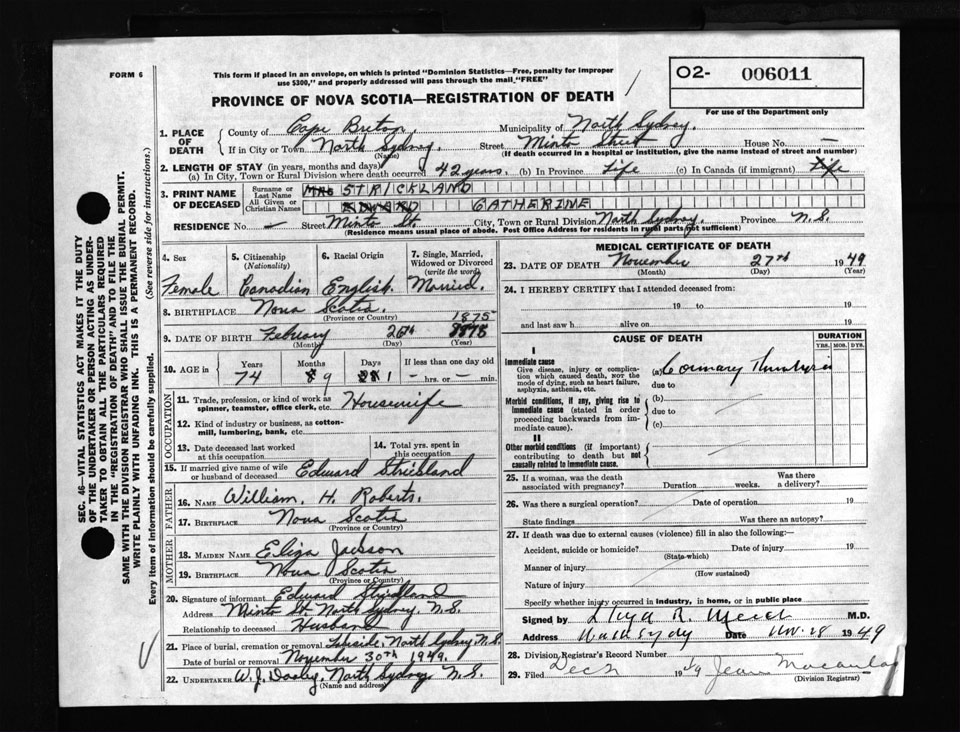 FORM 6
This form if placed in an envelope, on which is printed "Dominion Statistics—Free, penalty for improper
use $300," and properly addressed will pass through the mail "FREE"
O2- 006011
For use of the Department only
PROVINCE OF NOVA SCOTIA—REGISTRATION OF DEATH
1. PLACE OF DEATH
County of Cape Breton Municipality of North Sydney.
If in City or Town North Sydney. (Name) Street Minto Street House No. —
(If death occurred in a hospital or institution, give the name instead of street and number)
2. LENGTH OF STAY (in years, months and days)
(a) In City, Town or Rural Division where death occurred 42 years. (b) In Province Life (c) In Canada (if immigrant) Life
3. PRINT NAME OF DECEASED
Surname or Last Name MRS STRICKLAND
All Given or Christian Names EDWARD CATHERINE
RESIDENCE No. — Street Minto St. City, Town or Rural Division North Sydney. Province N.S.
(Residence means usual place of abode. Post Office Address for residents in rural parts not sufficient)
4. Sex Female
5. Citizenship (Nationality) Canadian
6. Racial Origin English.
7. Single, Married, Widowed or Divorced (write the word) Married.
8. BIRTHPLACE Nova Scotia. (Province or Country)
9. DATE OF BIRTH February (Month) 26th (Day) 1875 (Year)
10. AGE in Years 74 Months 8 9 Days 1 If less than one day old — hrs. or — min.
OCCUPATION
11. Trade, profession, or kind of work as spinner, teamster, office clerk, etc. Housewife
12. Kind of industry or business, as cotton-mill, lumbering, bank, etc.
13. Date deceased last worked at this occupation
14. Total yrs. spent in this occupation
15. If married give name of wife or husband of deceased Edward Strickland
FATHER
16. NAME William. H. Roberts.
17. BIRTHPLACE Nova Scotia (Province or Country)
MOTHER
18. MAIDEN NAME Eliza Jackson
19. BIRTHPLACE Nova Scotia (Province or Country)
20. Signature of informant Edward Strickland
Address Minto St. North Sydney. N.S.
Relationship to deceased Husband
21. Place of burial, cremation or removal Lakeside, North Sydney N.S.
Date of burial or removal November 30th 1949.
22. UNDERTAKER W. J. Dooley, North Sydney, N.S.
(Name and address)
MEDICAL CERTIFICATE OF DEATH
23. DATE OF DEATH November (Month) 27th (Day) 1949 (Year)
24. I HEREBY CERTIFY that I attended deceased from:
19 to 19
and last saw h alive on 19
CAUSE OF DEATH
DURATION
YRS. MOS. DYS.
I
Immediate cause
Give disease, injury or complication which caused death, NOT the mode of dying, such as heart failure, asphyxia, asthenia, etc.
(a) Coronary Thrombosis
due to
Morbid conditions, if any, giving rise to immediate cause (stated in order proceeding backwards from immediate cause).
(b)
due to
(c)
II
Other morbid conditions (if important) contributing to death but not causally related to immediate cause.
25. If a woman, was the death associated with pregnancy? Duration weeks. Was there a delivery?
26. Was there a surgical operation? Date of operation 19
State findings Was there an autopsy?
27. If death was due to external causes (violence) fill in also the following:—
Accident, suicide or homicide? (State which) Date of injury 19
Manner of injury (How sustained)
Nature of injury
Specify whether injury occurred in industry, in home, or in public place
Signed by R. M.D.
Address Date Nov. 28 1949
28. Division Registrar's Record Number
29. Filed Dec 2 1949 Jean Macaulay
(Division Registrar)
SEC. 46—VITAL STATISTICS ACT MAKES IT THE DUTY
OF THE UNDERTAKER OR PERSON ACTING AS UNDER-
TAKER TO OBTAIN ALL THE PARTICULARS REQUIRED
IN THE "REGISTRATION OF DEATH" AND TO FILE THE
SAME WITH THE DIVISION REGISTRAR WHO SHALL ISSUE THE BURIAL PERMIT.
WRITE PLAINLY WITH UNFADING INK. THIS IS A PERMANENT RECORD.
Every item of information should be carefully supplied. (See reverse side for instructions.)